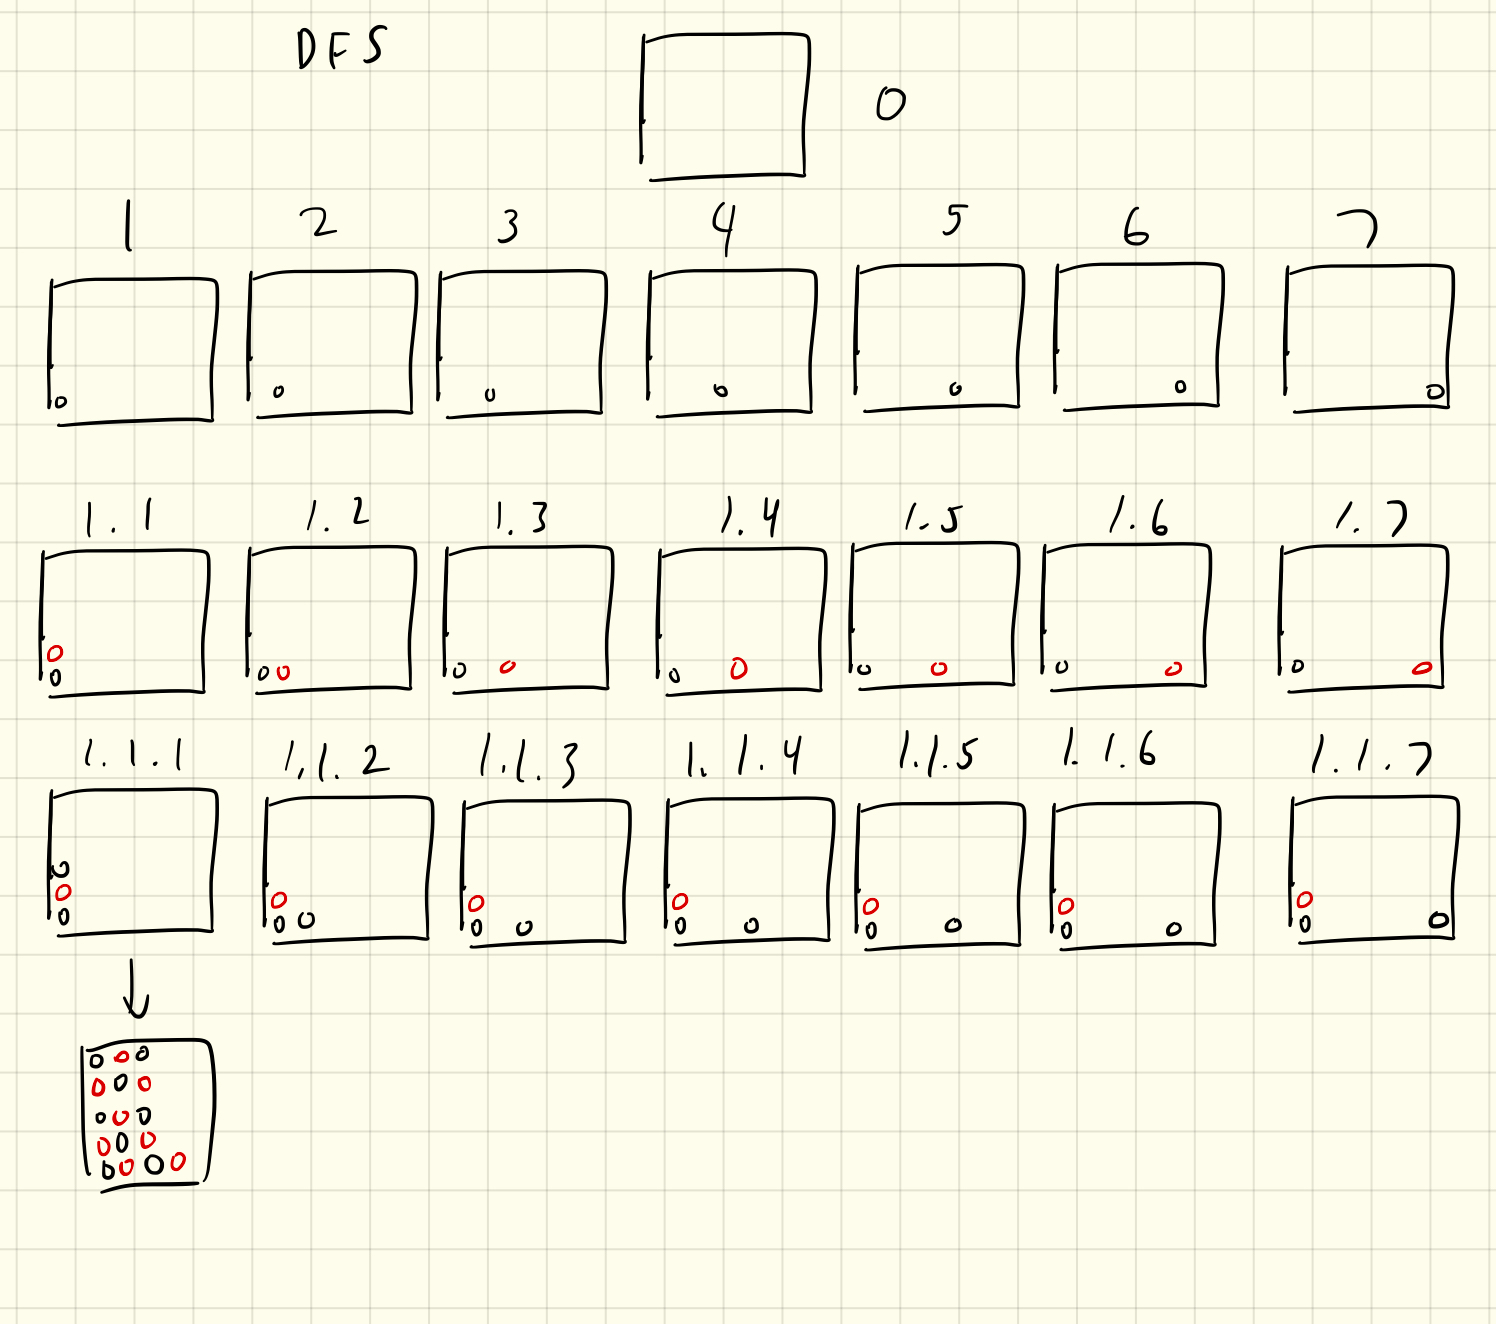 DFS
0
1 2 3 4 5 6 7
1.1 1.2 1.3 1.4 1.5 1.6 1.7
1.1.1 1.1.2 1.1.3 1.1.4 1.1.5 1.1.6 1.1.7